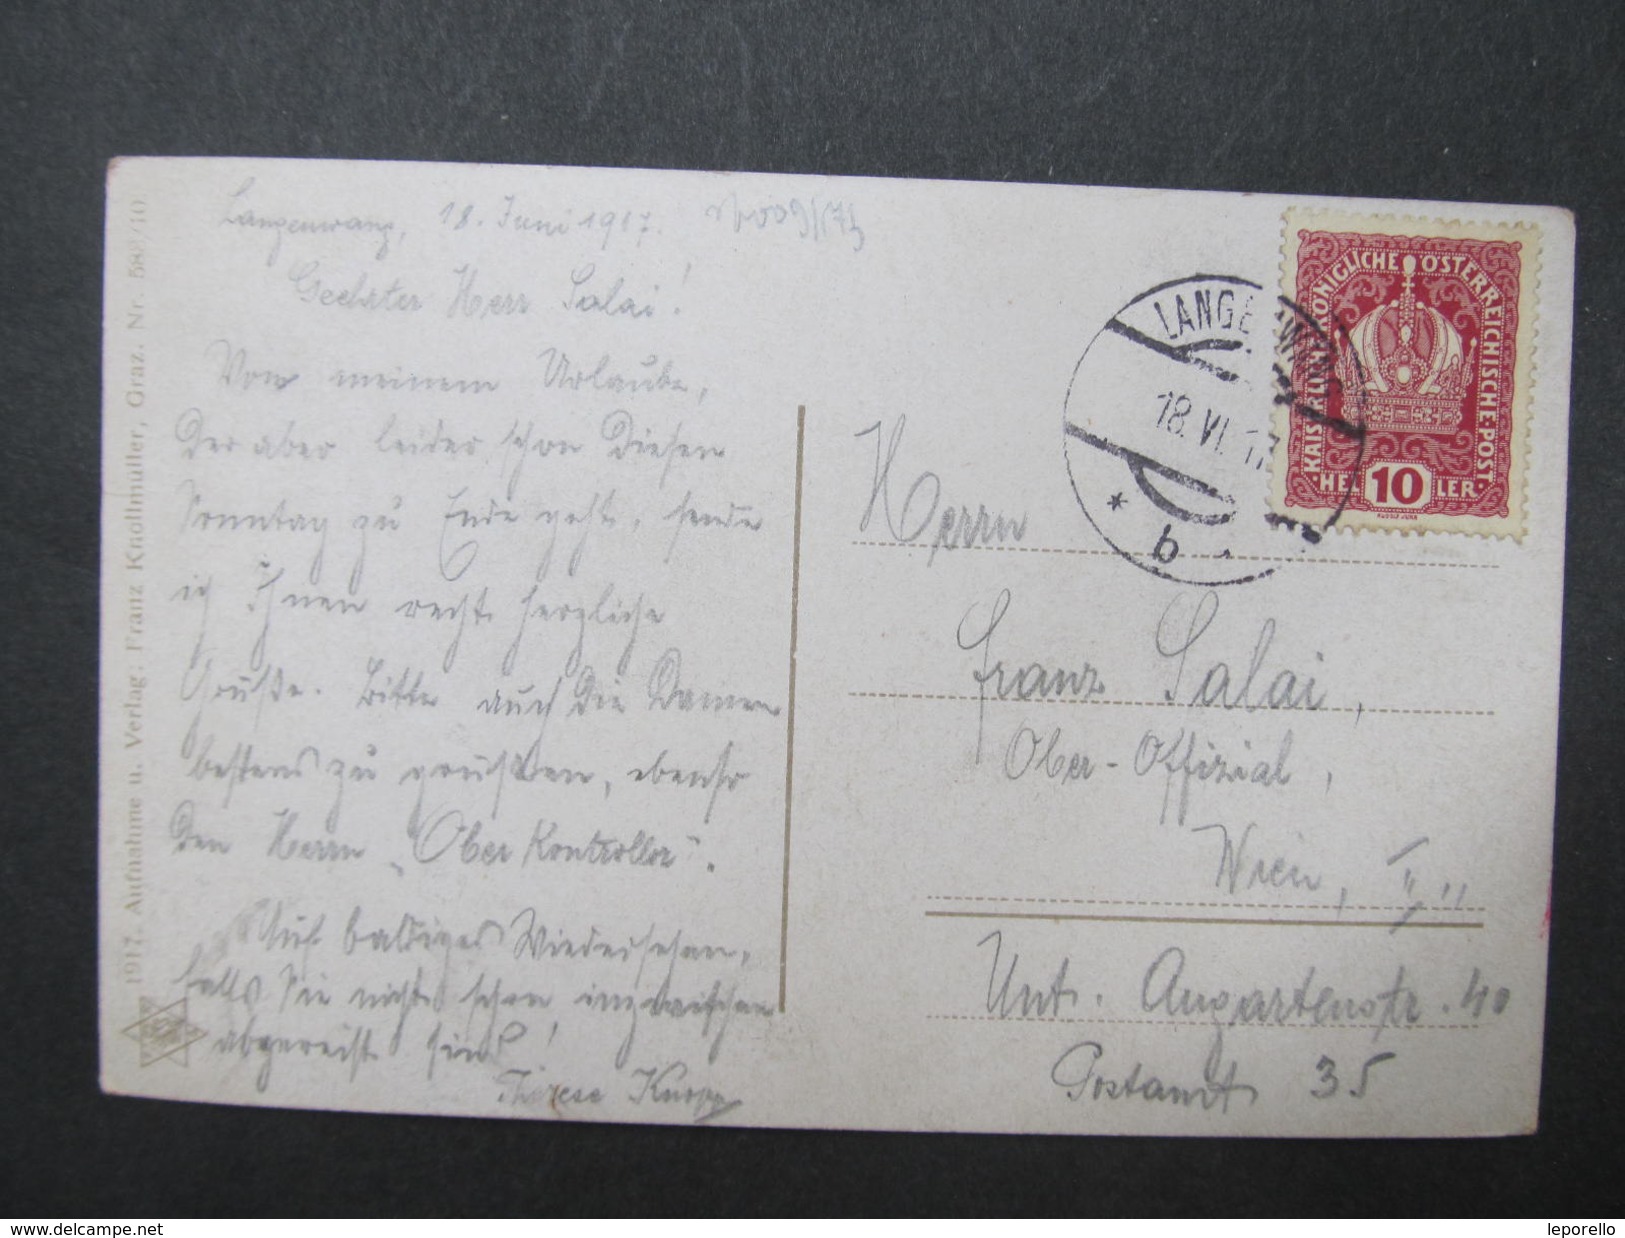 Langenwang, 18. Juni 1917.
Geehrter Herr Salai!
Von meinem Urlaube,
der aber leider schon diesen
Sonntag zu Ende geht, sende
ich Ihnen recht herzliche
Grüße. Bitte auch die Damen
bestens zu grüßen, ebenso
den Herrn „Ober Kontrollor".
Auf baldiges Wiedersehen,
falls Sie nicht schon inzwischen
abgereist sind!
Therese
1917. Aufnahme u. Verlag: Franz Knollmüller, Graz. Nr. 588/10
LANGENWANG
18. VI. 17
* b
KAISERLICH KÖNIGLICHE ÖSTERREICHISCHE POST
HEL 10 LER
Herrn
Franz Salai,
Ober-Offizial,
Wien,
Unt. Augartenstr. 40
Postamt 35
delcampe.net
leporello